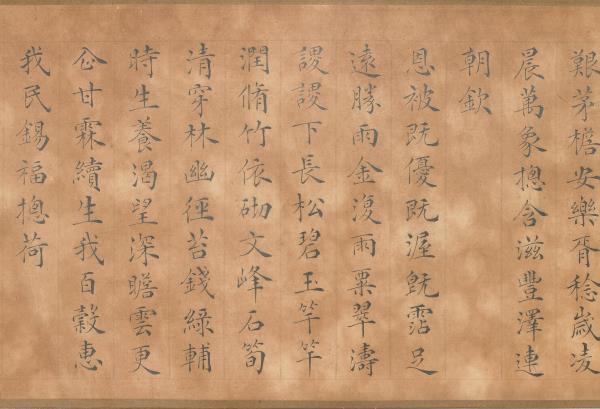 艱茅檐安樂胥稔歲凌
晨萬象摠含滋豐澤連
朝欽
恩被既優既渥旣霑足
遠勝雨金復雨粟翠濤
謖謖下長松碧玉竿竿
潤脩竹依砌文峰石筍
清穿林幽徑苔錢綠輔
時生養渴望深瞻雲更
企甘霖續生我百穀惠
我民錫福摠荷